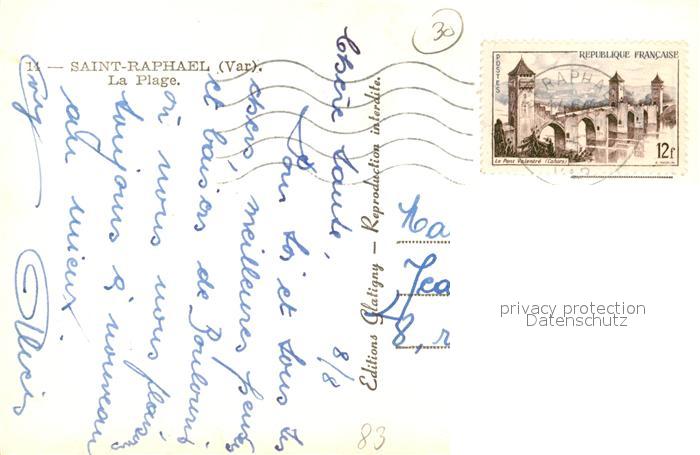 30
11 — SAINT-RAPHAEL (Var).
La Plage.
8/8
Pour toi et tous tes
meilleures pensées
et baisers de Boulouris
où nous nous plaisons
toujours à nouveau
au mieux.
Editions Glatigny — Reproduction interdite.
REPUBLIQUE FRANÇAISE
POSTES
12f
Le Pont Valentré (Cahors)
RAPHA
Ma
Jea
8, r
privacy protection
Datenschutz
83